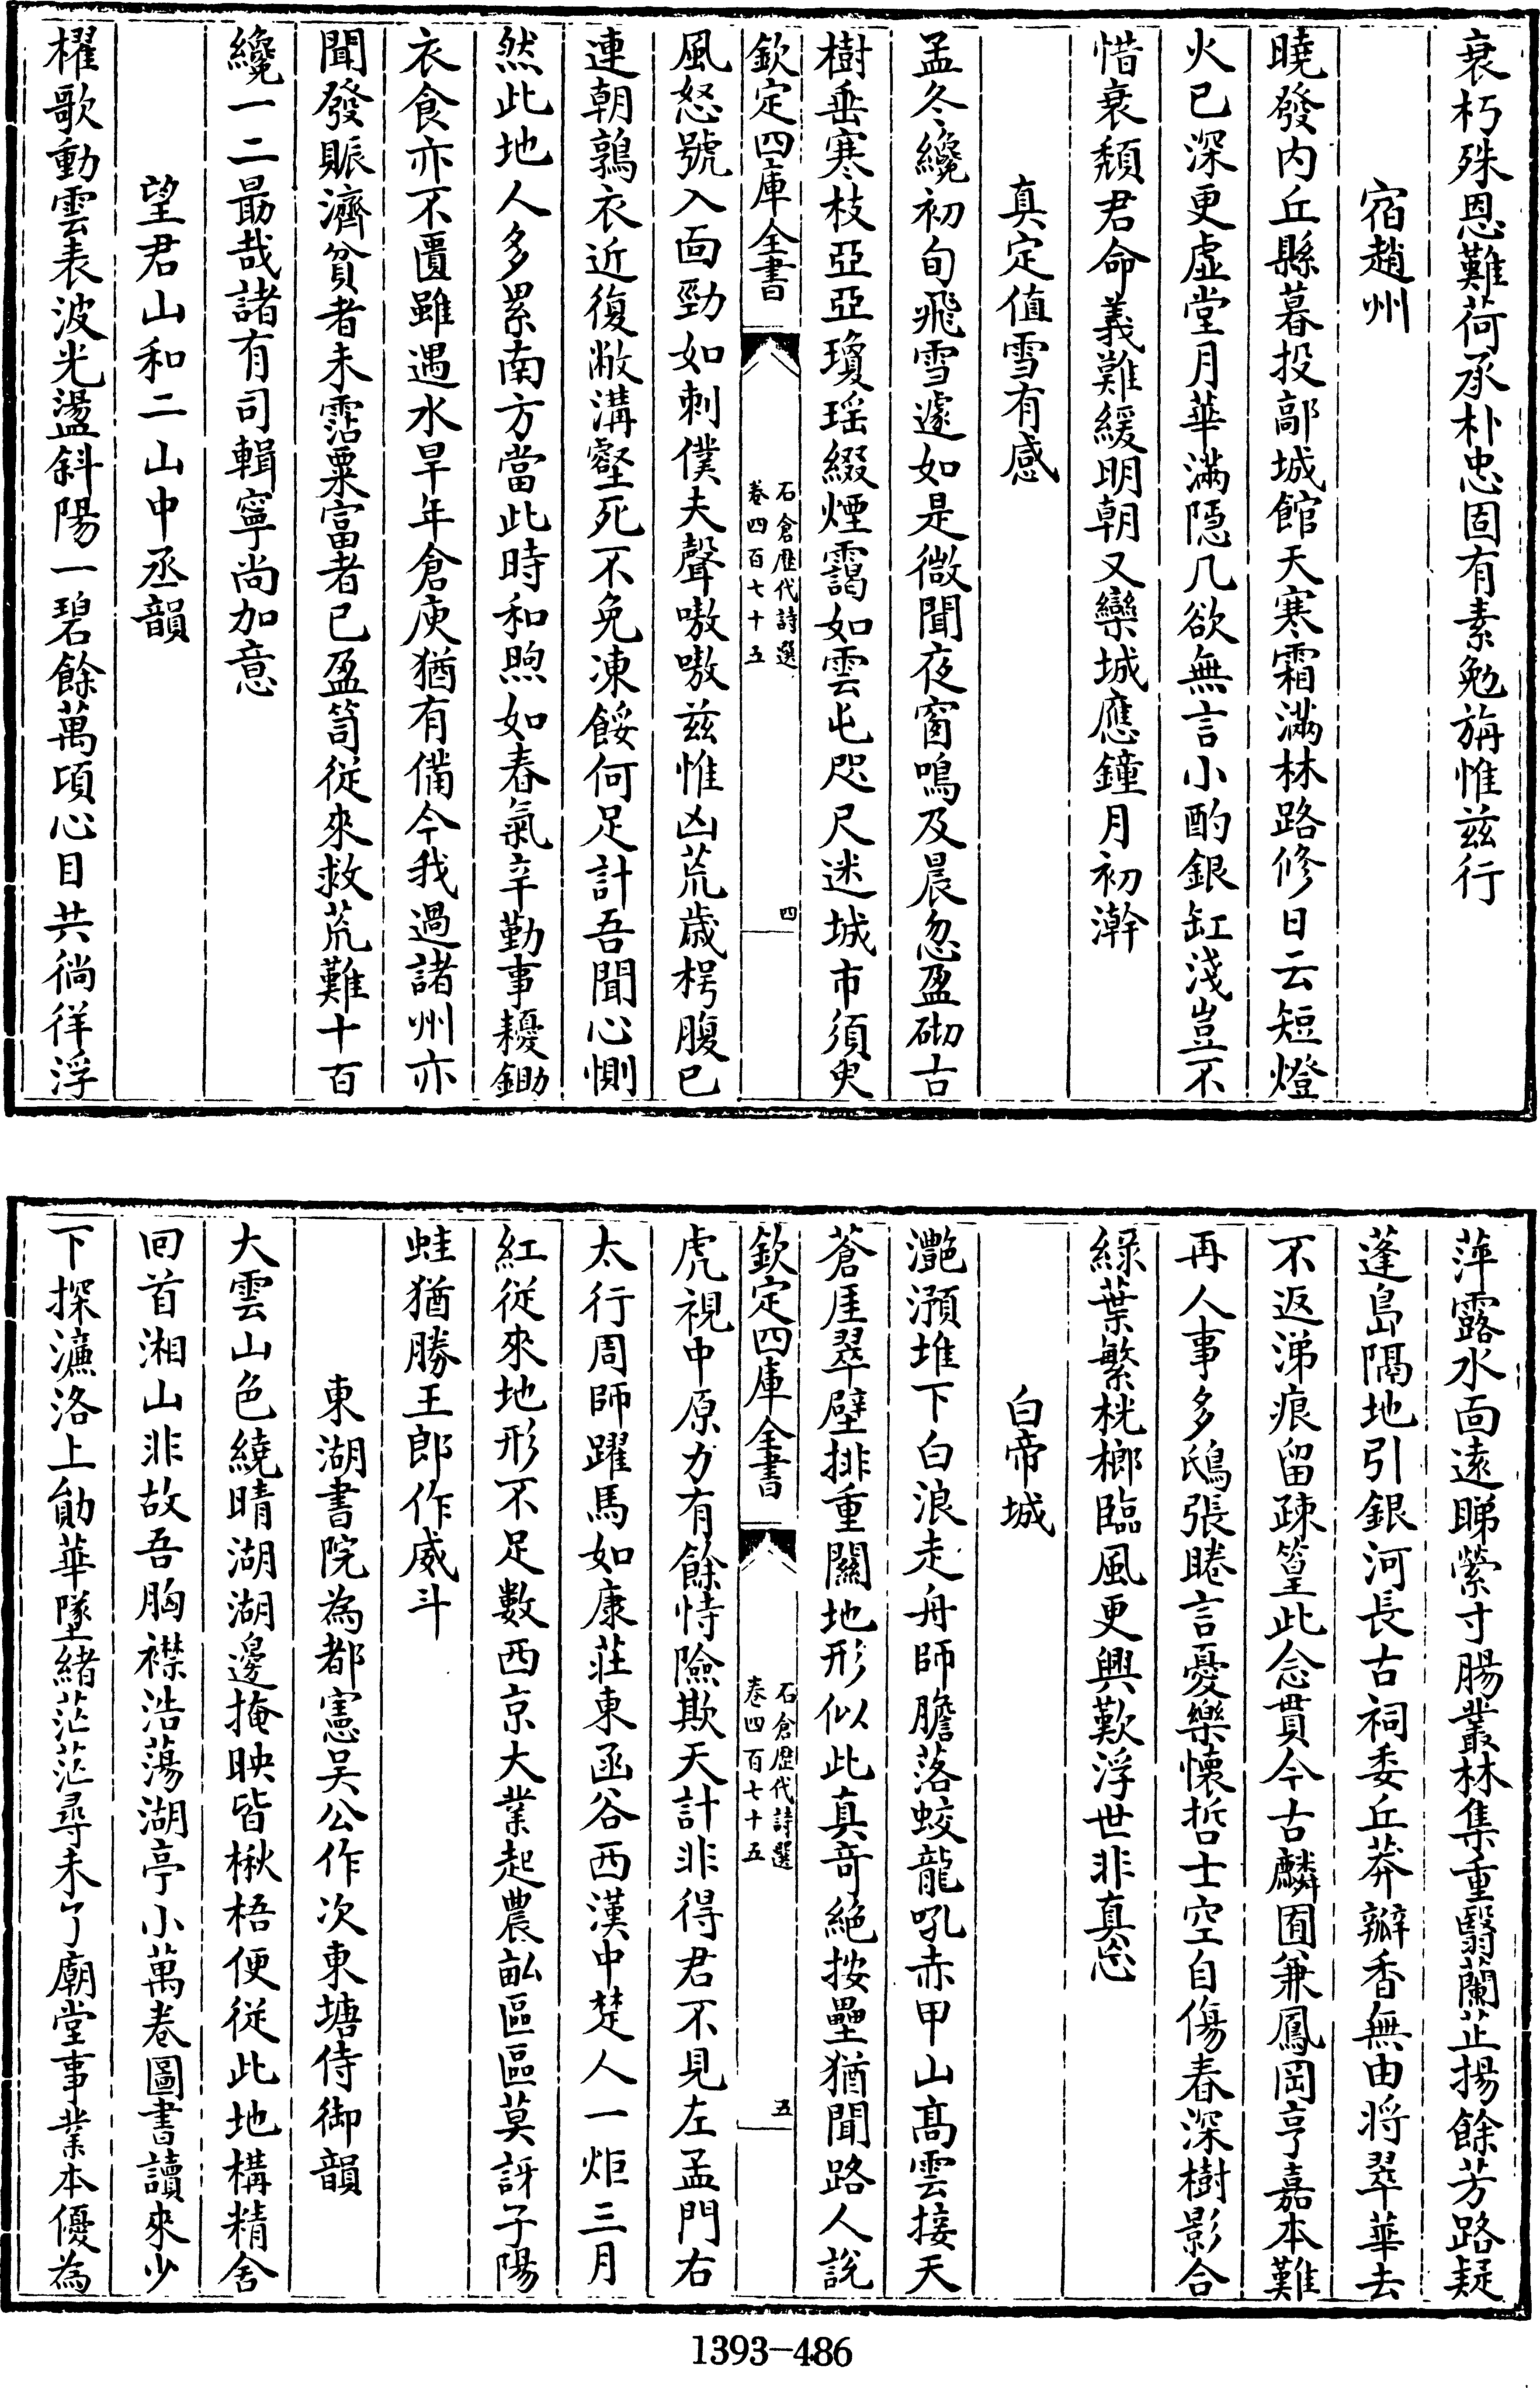 衰朽殊恩難荷承朴忠固有素勉旃惟茲行
宿趙州
曉發内丘縣暮投鄗城館天寒霜滿林路修日云短燈
火已深更虛堂月華滿隱几欲無言小酌銀缸淺豈不
惜衰頽君命義難緩明朝又欒城應鐘月初澣
真定值雪有感
孟冬纔初旬飛雪遽如是微聞夜窗鳴及晨忽盈砌古
樹垂寒枝亞亞瓊瑤綴煙靄如雲屯咫尺迷城市須臾
欽定四庫全書
石倉歴代詩選
卷四百七十五
四
風怒號入面勁如刺僕夫聲嗷嗷茲惟凶荒歲枵腹已
連朝鶉衣近復敝溝壑死不免凍餒何足計吾聞心惻
然此地人多累南方當此時和煦如春氣辛勤事耰鋤
衣食亦不匱雖遇水旱年倉庾猶有備今我過諸州亦
聞發賑濟貧者未霑粟富者已盈笥從來救荒難十百
纔一二勗哉諸有司輯寧尚加意
望君山和二山中丞韻
櫂歌動雲表波光盪斜陽一碧餘萬頃心目共徜徉浮
萍露水面遠睇縈寸腸叢林集重翳蘭芷揚餘芳路疑
蓬島隔地引銀河長古祠委丘莽瓣香無由將翠華去
不返涕痕留疎篁此念貫今古麟囿兼鳳岡亨嘉本難
再人事多鴟張睠言憂樂懷哲士空自傷春深樹影合
綠葉繁桄榔臨風更興歎浮世非真忘
白帝城
灧澦堆下白浪走舟師膽落蛟龍吼赤甲山高雲接天
蒼厓翠壁排重關地形似此真奇絶按壘猶聞路人說
欽定四庫全書
石倉歴代詩選
卷四百七十五
五
虎視中原力有餘恃險欺天計非得君不見左孟門右
太行周師躍馬如康莊東函谷西漢中楚人一炬三月
紅從來地形不足數西京大業起農畝區區莫訝子陽
蛙猶勝王郎作威斗
東湖書院為都憲吴公作次東塘侍御韻
大雲山色繞晴湖湖邊掩映皆楸梧便從此地構精舍
回首湘山非故吾胸襟浩蕩湖亭小萬卷圖書讀來少
下探濂洛上勛華墜緒茫茫尋未了廟堂事業本優為
1393-486